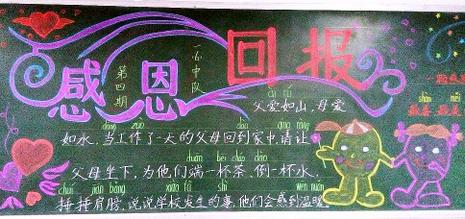 感恩 回报
第四期
中队
父爱如山,母爱
如水,当工作了一天的父母回到家中,请让
duān bēi chá dào
父母坐下,为他们端一杯茶,倒一杯水,
chuí jiān bǎng xiào fā shì wēn nuǎn
捶捶肩膀,说说学校发生的事,他们会感到温暖